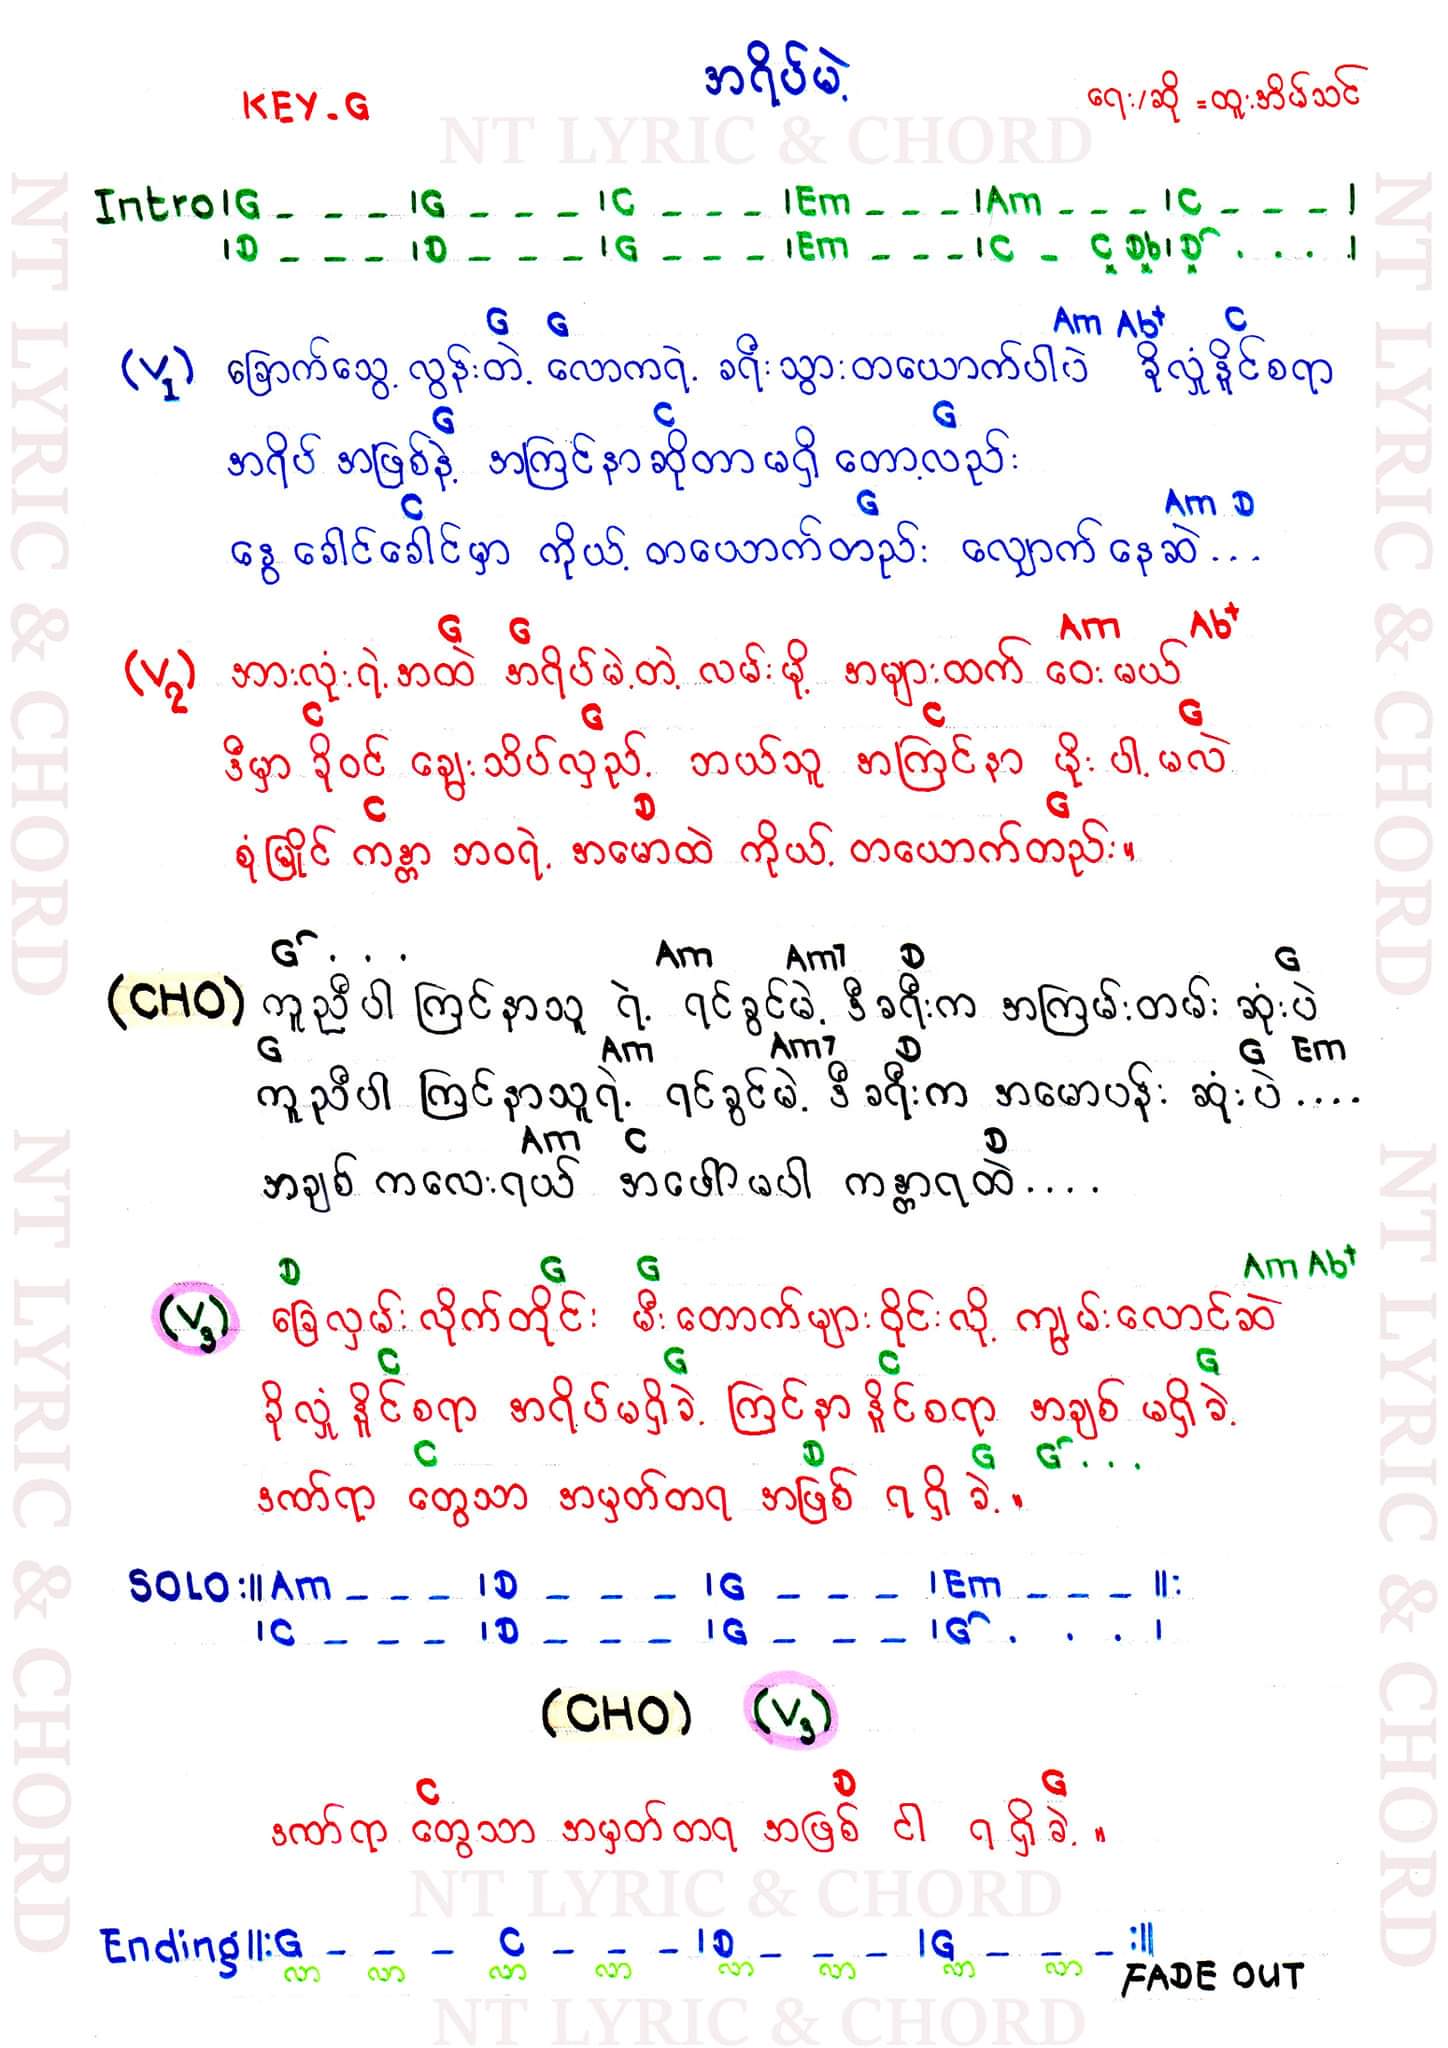 အရိပ်မဲ့
KEY-G
ရေး/ဆို = ထူးအိမ်သင်
NT LYRIC & CHORD
Intro |G _ _ _ |G _ _ _ |C _ _ _ |Em _ _ _ |Am _ _ _ |C _ _ _ |
|D _ _ _ |D _ _ _ |G _ _ _ |Em _ _ _ |C _ C Db |D . . . |
G G Am Ab+ C
(V1) ခြောက်သွေ့လွန်းတဲ့ လောကရဲ့ ခရီးသွားတယောက်ပါပဲ ခိုလှုံနိူင်စရာ
G C G
အရိပ် အဖြစ်နဲ့ အကြင်နာဆိုတာမရှိ တော့လည်း
C G Am D
နွေ ခေါင်ခေါင်မှာ ကိုယ့် တယောက်တည်း လျှောက်နေဆဲ...
G G Am Ab+
(V2) အားလုံးရဲ့အထဲ အရိပ်မဲ့တဲ့ လမ်းမို့ အများထက် ဝေးမယ်
C G C G
ဒီမှာ ခိုဝင် ချွေးသိပ်လှည့် ဘယ်သူ အကြင်နာ မိုးပါ့မလဲ
C D G
စုံမြိုင် ကန္တာ ဘဝရဲ့ အမောထဲ ကိုယ့် တယောက်တည်း။
G . . . Am Am7 D G
(CHO) ကူညီပါ ကြင်နာသူ ရဲ့ ရင်ခွင်မဲ့ ဒီခရီးက အကြမ်းတမ်း ဆုံးပဲ
G Am Am7 D G Em
ကူညီပါ ကြင်နာသူရဲ့ ရင်ခွင်မဲ့ ဒီခရီးက အမောပန်း ဆုံးပဲ....
Am C D
အချစ် ကလေးရယ် အဖေါ်မပါ ကန္တာရထဲ....
D G G Am Ab+
(V3) ခြေလှမ်းလိုက်တိုင်း မီးတောက်များဝိုင်းလို့ ကျွမ်းလောင်ဆဲ
C G C G
ခိုလှုံနိူင်စရာ အရိပ်မရှိခဲ့ ကြင်နာနိူင်စရာ အချစ် မရှိခဲ့
C D G G . . .
ဒဏ်ရာ တွေသာ အမှတ်တရ အဖြစ် ရရှိ ခဲ့။
SOLO :||Am _ _ _ |D _ _ _ |G _ _ _ |Em _ _ _ ||:
|C _ _ _ |D _ _ _ |G _ _ _ |G . . . |
(CHO) (V3)
C D G
ဒဏ်ရာ တွေသာ အမှတ်တရ အဖြစ် ငါ ရရှိခဲ့။
NT LYRIC & CHORD
Ending ||:G _ _ _ C _ _ _ |D _ _ _ |G _ _ _ :||
လာ လာ လာ လာ လာ လာ လာ လာ
FADE OUT
NT LYRIC & CHORD
NT LYRIC & CHORD
NT LYRIC & CHORD
NT LYRIC & CHORD
NT LYRIC & CHORD